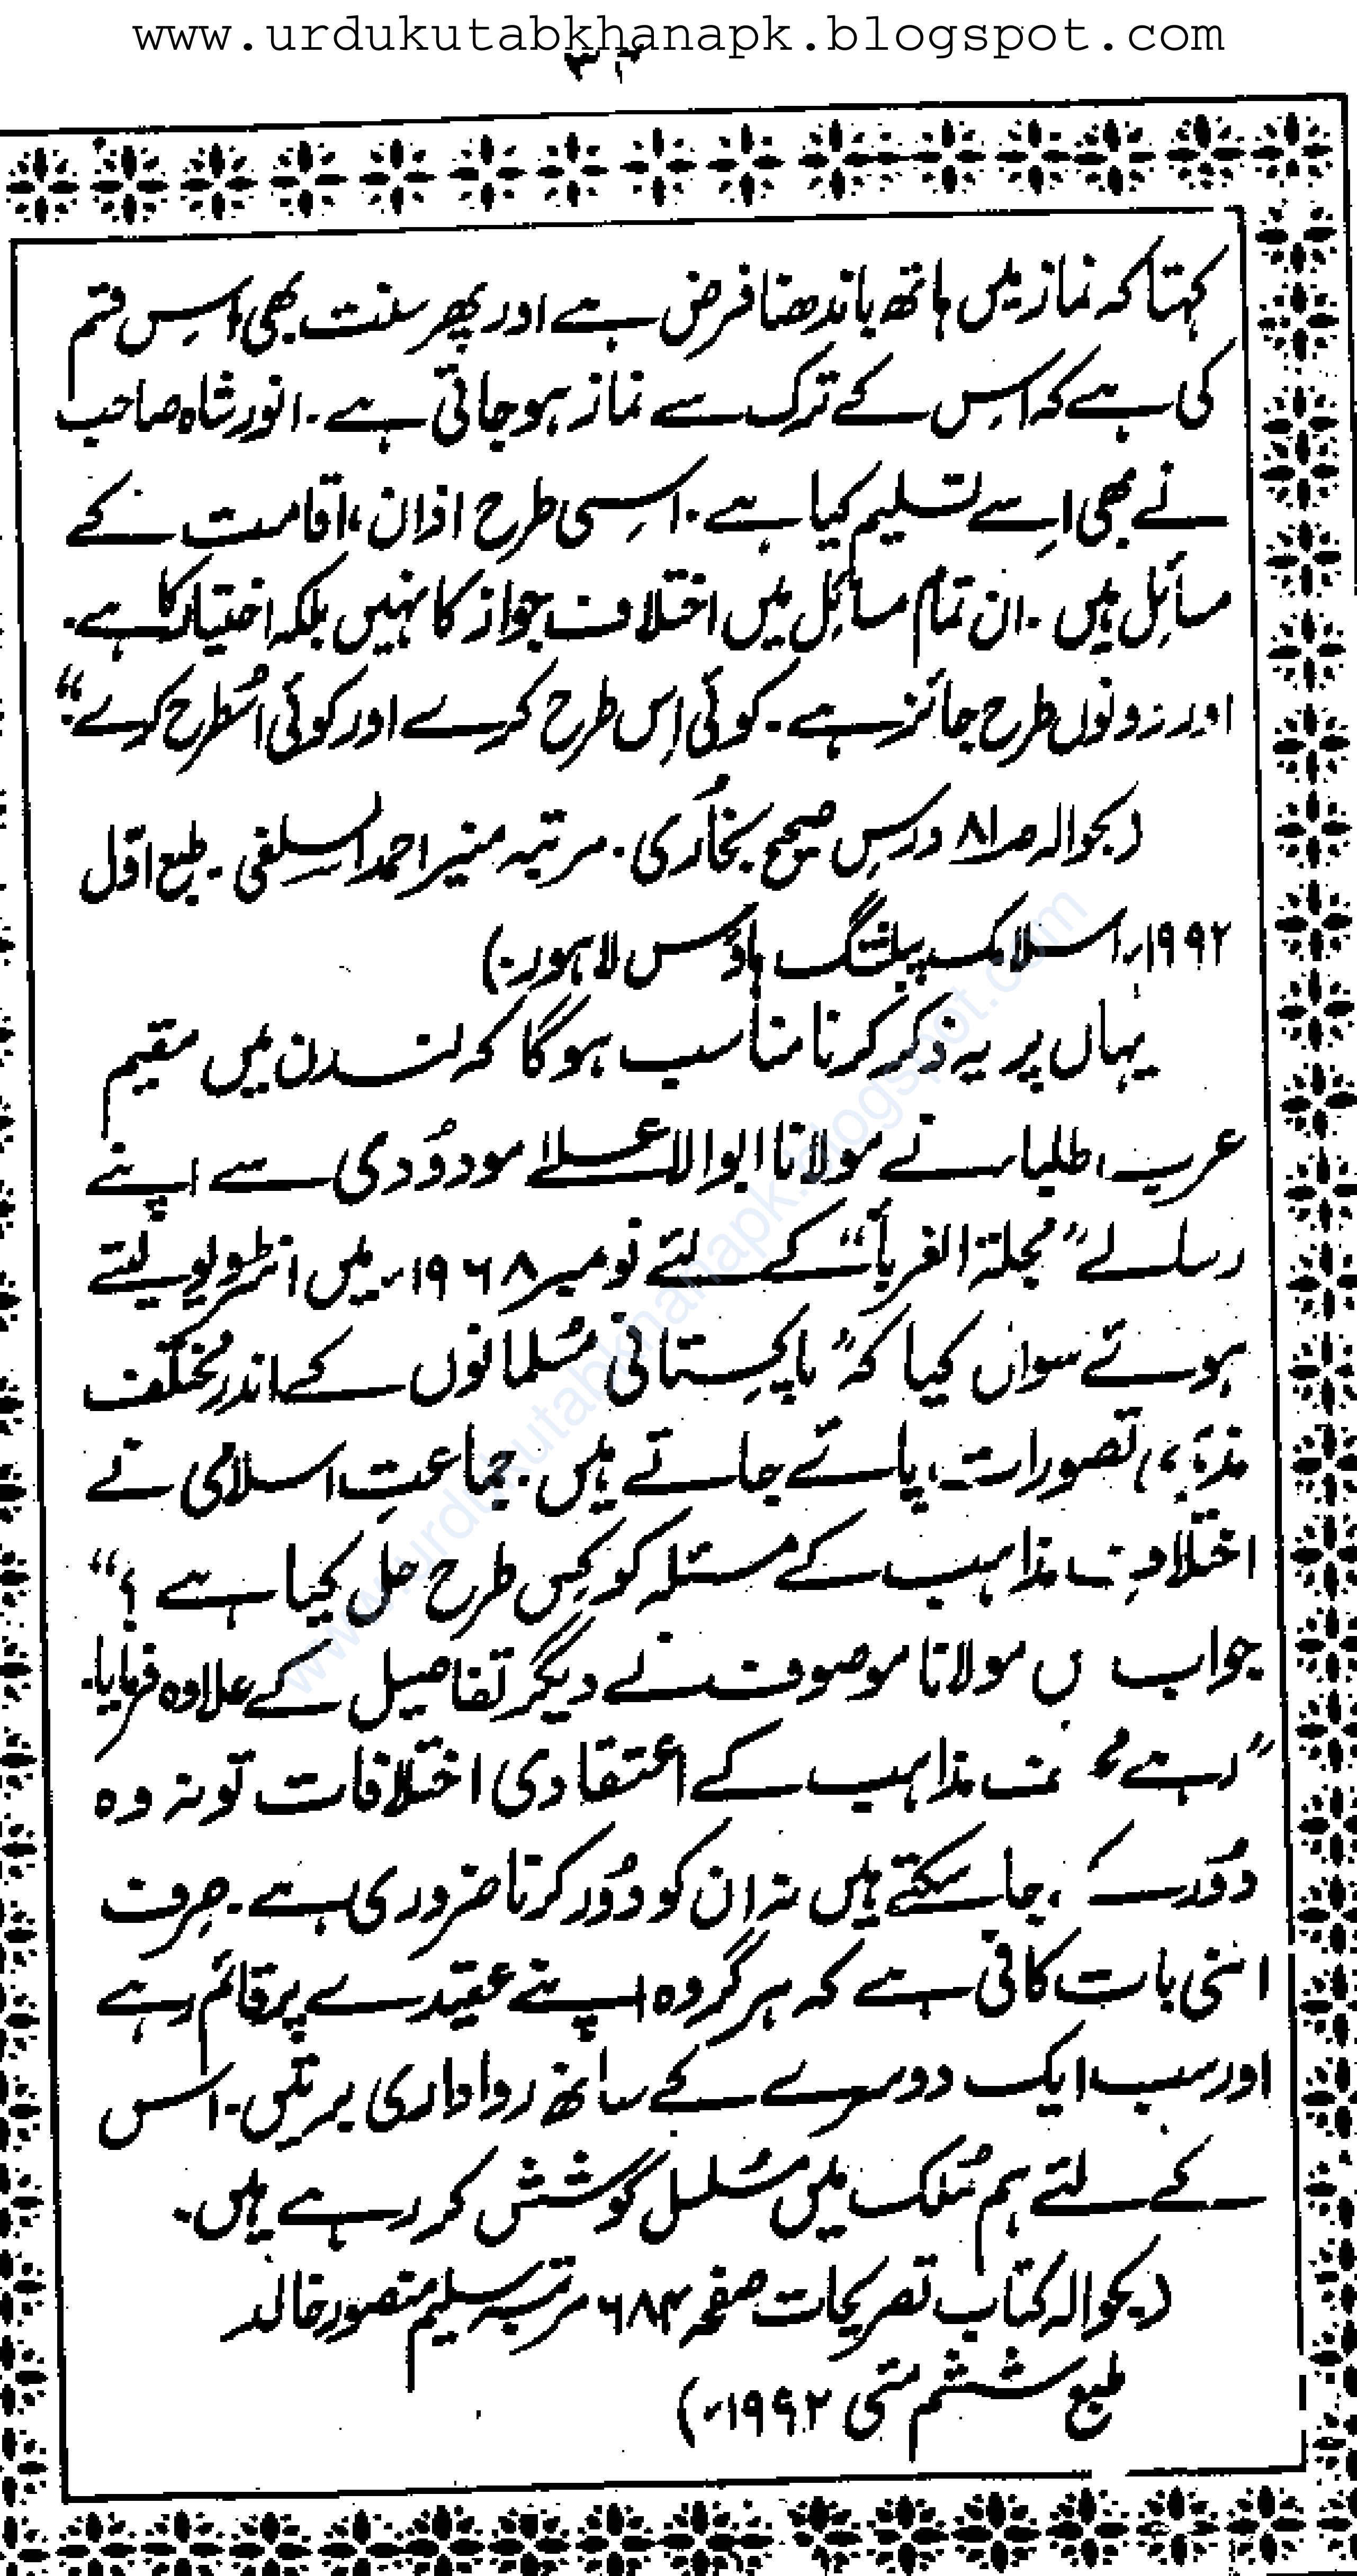 www.urdukutabkhanapk.blogspot.com
کہتا کہ نماز میں ہاتھ باندھنا فرض ہے اور پھر سنت بھی اس قسم
کی ہے کہ اس کے ترک سے نماز ہو جاتی ہے۔ انور شاہ صاحب
نے بھی اسے تسلیم کیا ہے۔ اسی طرح اذان، اقامت کے
مسائل ہیں۔ ان تمام مسائل میں اختلاف جواز کا نہیں بلکہ اختیار کا ہے۔
اور دونوں طرح جائز ہے۔ کوئی اِس طرح کرے اور کوئی اُسطرح کرے۔“
(بحوالہ صـ ۸۱ درسِ صحیح بخاری۔ مرتبہ منیر احمد السلفی۔ طبع اول
۱۹۹۲ء اسلامک پبلشنگ ہاؤس لاہور۔)
یہاں پر یہ ذکر کرنا مناسب ہو گا کہ لندن میں مقیم
عرب طلباء نے مولانا ابوالاعلےٰ مودُودی سے اپنے
رسالے ”مجلۃ الغرباء“ کے لئے نومبر ۱۹۶۸ء میں انٹرویو لیتے
ہوئے سوال کیا کہ ”پاکستانی مُسلمانوں کے اندر مُختلف
تصورات پائے جاتے ہیں۔ جماعتِ اسلامی نے
اختلافِ مذاہب کے مسئلہ کو کِس طرح حل کیا ہے؟“
جواب میں مولانا موصوف نے دیگر تفاصیل کے علاوہ فرمایا۔
”رہے مختلف مذاہب کے اعتقادی اختلافات تو نہ وہ
دُور کئے جا سکتے ہیں نہ ان کو دُور کرنا ضروری ہے۔ صِرف
اتنی بات کافی ہے کہ ہر گروہ اپنے عقیدے پر قائم رہے
اور سب ایک دوسرے کے ساتھ رواداری برتیں۔ اس
کے لئے ہم مُلک میں مُسلسل کوشش کر رہے ہیں۔
(بحوالہ کتاب تصریحات صفحہ ۶۸۴ مرتبہ سلیم منصور خالد
طبع ششم مئی ۱۹۹۲ء)
www.urdukutabkhanapk.blogspot.com